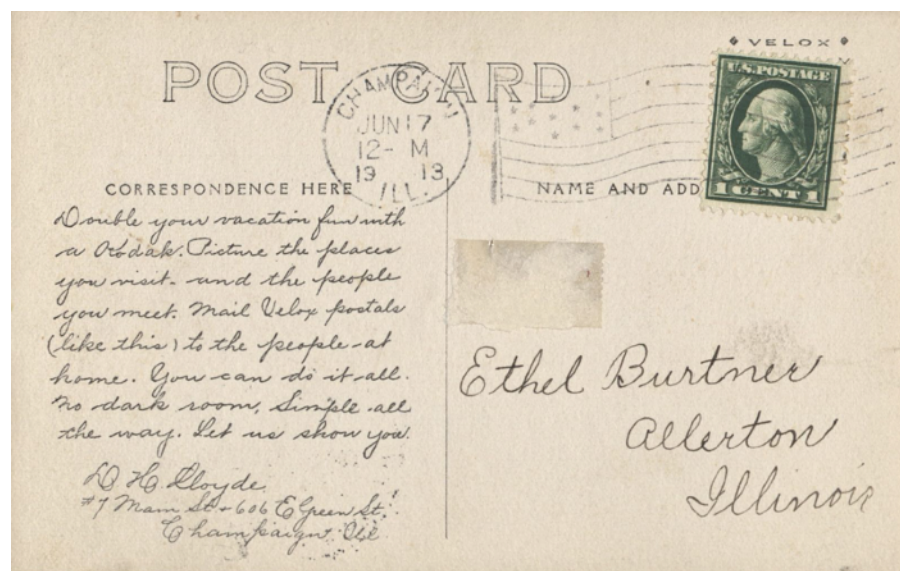 VELOX
POST CARD
U.S. POSTAGE
1 CENT 1
CHAMPAIGN
JUN 17
12- M
19 13
ILL.
CORRESPONDENCE HERE
NAME AND ADD
Double your vacation fun with
a Kodak. Picture the places
you visit - and the people
you meet. Mail Velox postals
(like this) to the people at
home. You can do it all.
No dark room, Simple all
the way. Let us show you.
D. H. Lloyde
#7 Main St - 606 E Green St.
Champaign Ill
Ethel Burtner
Allerton
Illinois